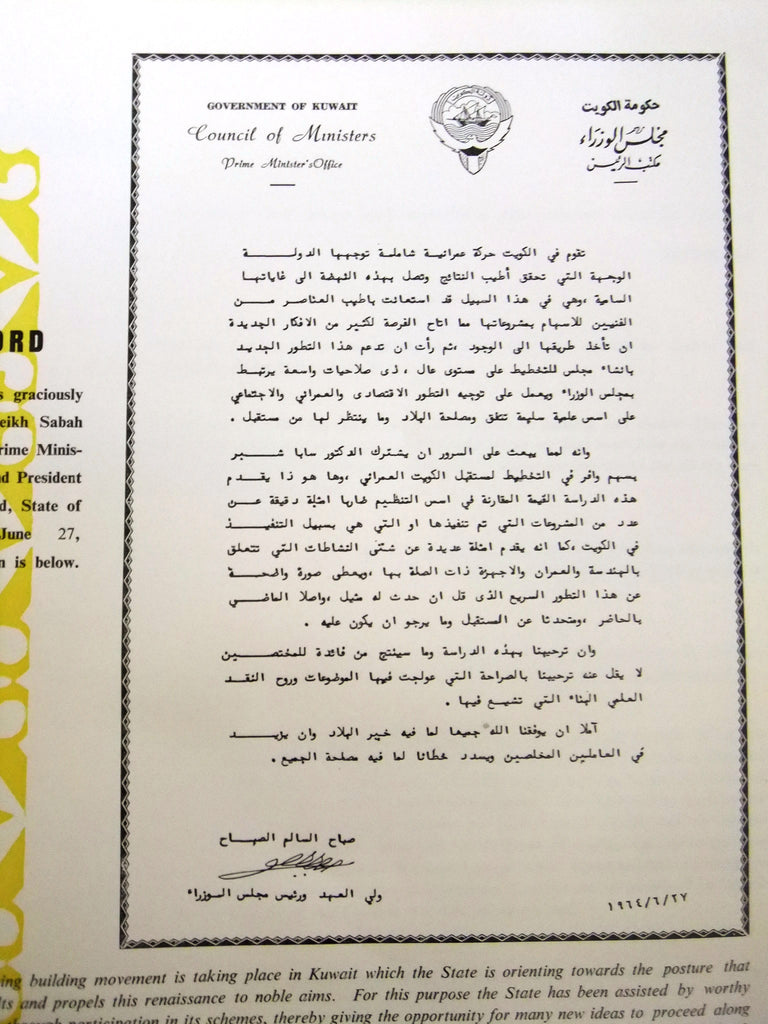 GOVERNMENT OF KUWAIT
Council of Ministers
Prime Minister's Office
حكومة الكويت
مجلس الوزراء
مكتب الرئيس
تقوم في الكويت حركة عمرانية شاملة توجهها الدولة
الوجهة التي تحقق أطيب النتائج وتصل بهذه النهضة الى غاياتها
السامية ،وهي في هذا السبيل قد استعانت باطيب العناصر من
الفنيين للاسهام بمشروعاتها مما اتاح الفرصة لكثير من الافكار الجديدة
ان تأخذ طريقها الى الوجود ،ثم رأت ان تدعم هذا التطور الجديد
بانشاء مجلس للتخطيط على مستوى عال ، ذى صلاحيات واسعة يرتبط
بمجلس الوزراء ويعمل على توجيه التطور الاقتصادى والعمراني والاجتماعي
على اسس علمية سليمة تتفق ومصلحة البلاد وما ينتظر لها من مستقبل .
وانه لمما يبعث على السرور ان يشترك الدكتور سابا شبر
بسهم وافر في التخطيط لمستقبل الكويت العمراني ،وها هو ذا يقدم
هذه الدراسة القيمة المقارنة في اسس التنظيم ضاربا امثلة دقيقة عن
عدد من المشروعات التي تم تنفيذها او التي هي بسبيل التنفيذ
في الكويت ،كما انه يقدم امثلة عديدة عن شتى النشاطات التي تتعلق
بالهندسة والعمران والاجهزة ذات الصلة بها ،ويعطى صورة واضحة
عن هذا التطور السريع الذى قل ان حدث له مثيل ،واصلا الماضي
بالحاضر ،ومتحدثا عن المستقبل وما يرجو ان يكون عليه .
وان ترحيبنا بهذه الدراسة وما سينتج من فائدة للمختصين
لا يقل عنه ترحيبنا بالصراحة التي عولجت فيها الموضوعات وروح النقد
العلمي البناء التي تشيع فيها .
آملا ان يوفقنا الله جميعا لما فيه خير البلاد وان يزيد
في العاملين المخلصين ويسدد خطانا لما فيه مصلحة الجميع .
صباح السالم الصباح
ولي العهد ورئيس مجلس الوزراء
١٩٦٤/٦/٢٧
ORD
s graciously
eikh Sabah
rime Minis-
d President
d, State of
June 27,
n is below.
ing building movement is taking place in Kuwait which the State is orienting towards the posture that
lts and propels this renaissance to noble aims. For this purpose the State has been assisted by worthy
through participation in its schemes, thereby giving the opportunity for many new ideas to proceed along